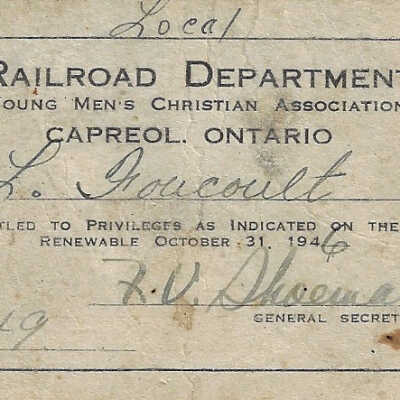 Local
RAILROAD DEPARTMENT
OUNG MEN'S CHRISTIAN ASSOCIATION
CAPREOL. ONTARIO
L. Foucoult
TLED TO PRIVILEGES AS INDICATED ON THE
RENEWABLE OCTOBER 31, 1946
F. V. Shoema
GENERAL SECRET
49